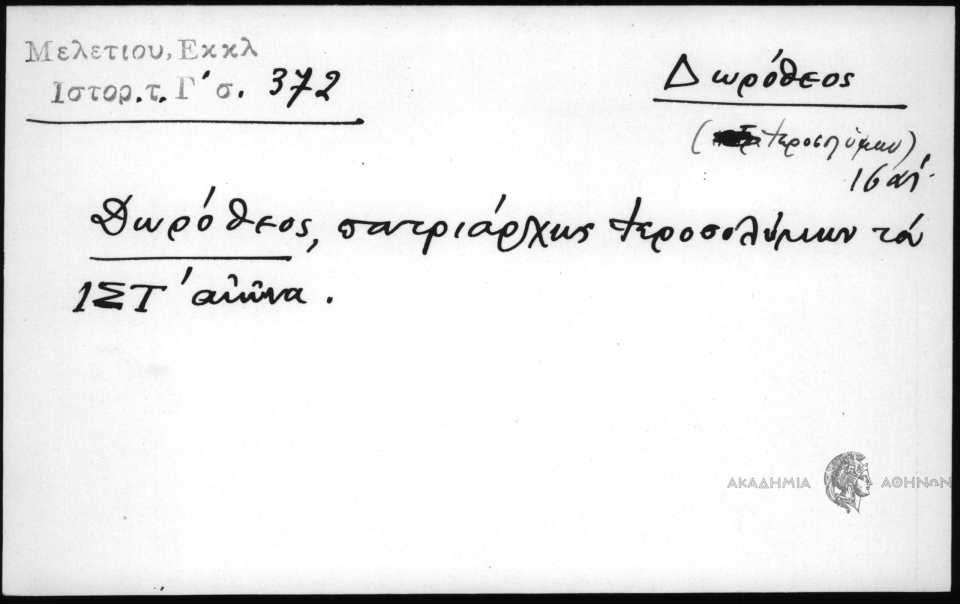 Μελετιου, Εκκλ
Ιστορ.τ. Γ' σ. 372
Δωρόθεος
(Ἱεροσολύμων)
16 αἰ.
Δωρόθεος, πατριάρχης Ἱεροσολύμων τοῦ
ΙΣΤ' αἰῶνα.
ΑΚΑΔΗΜΙΑ ΑΘΗΝΩΝ